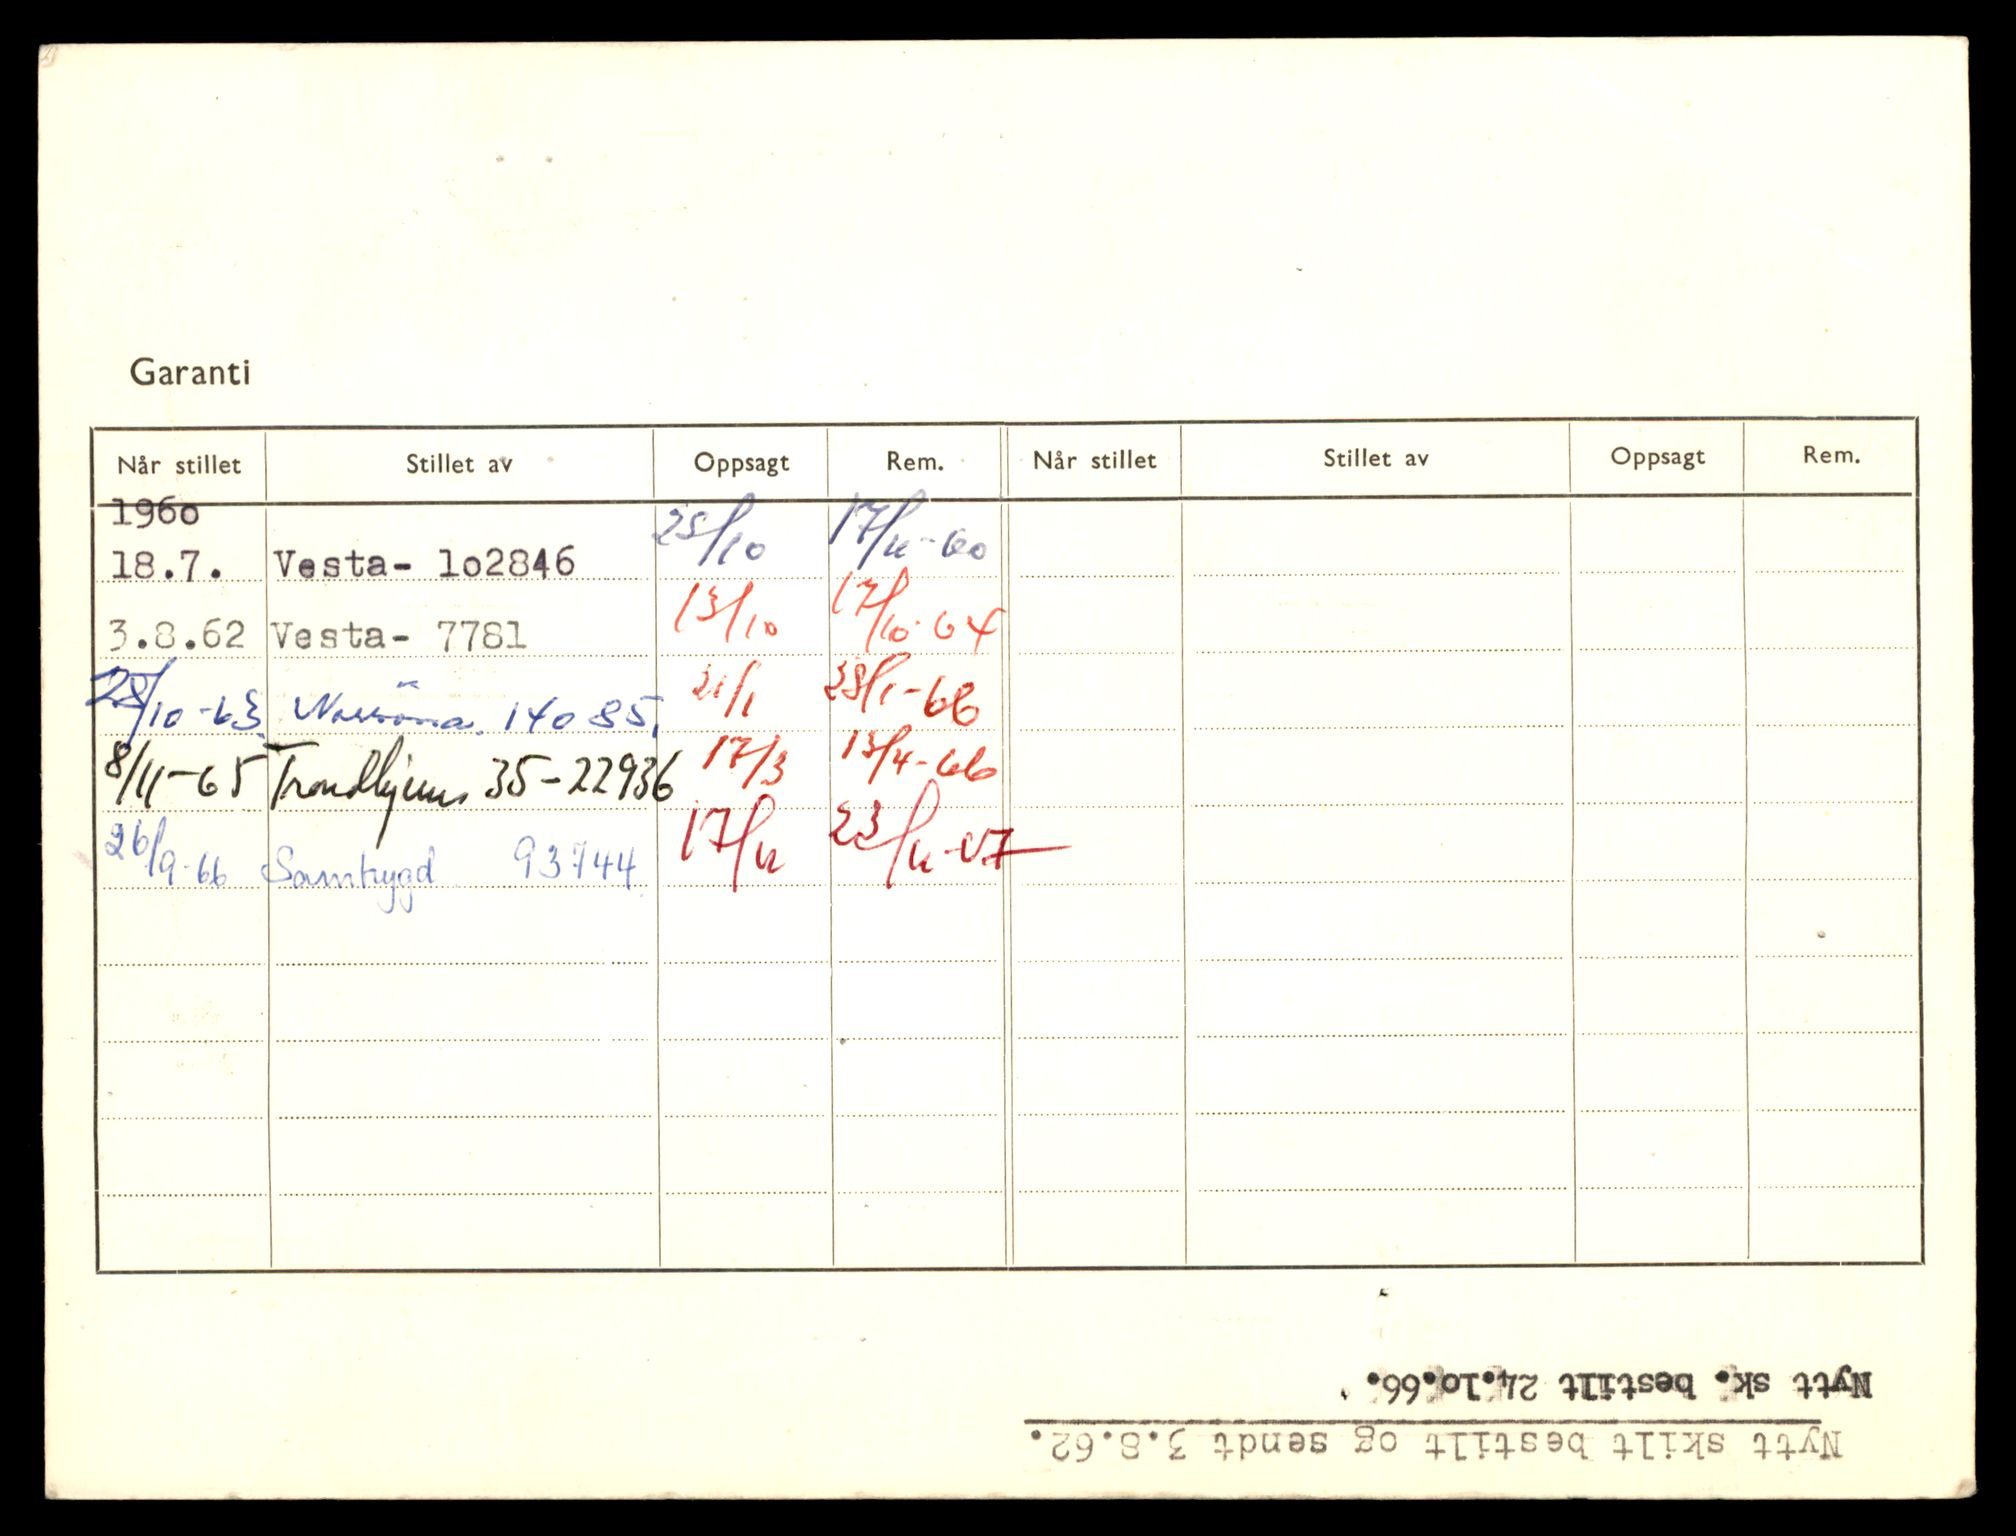 Garanti
Når stillet Stillet av Oppsagt Rem. Når stillet Stillet av Oppsagt Rem.
1960
18.7. Vesta- 1o2846 25/10 17/11-60
3.8.62 Vesta- 7781 13/10 17/10-64
/10-63 14085. 21/1 28/1-66
8/11-65 Trondhjems 35-22936 17/3 13/4-66
26/9-66 Samtrygd 93744 17/11 23/11-67
Nytt skilt bestilt og sendt 3.8.62.
Nytt sk. bestilt 24.1o.66.